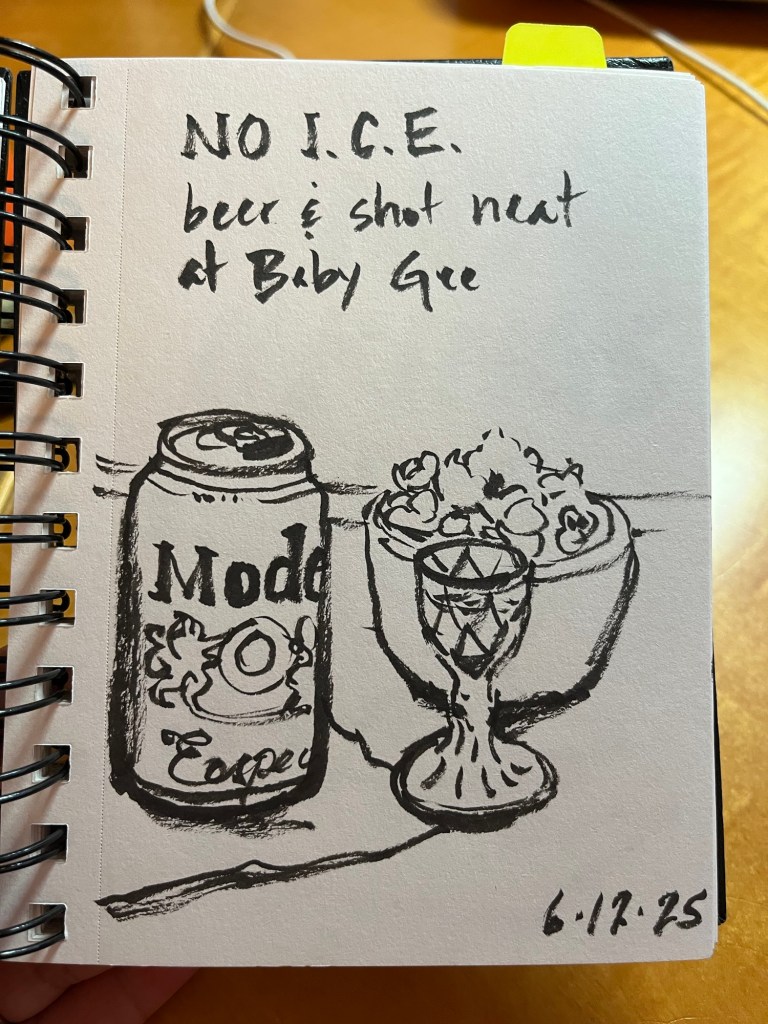 NO I.C.E.
beer & shot neat
at Baby Gee
Mode
Especi
6.12.25